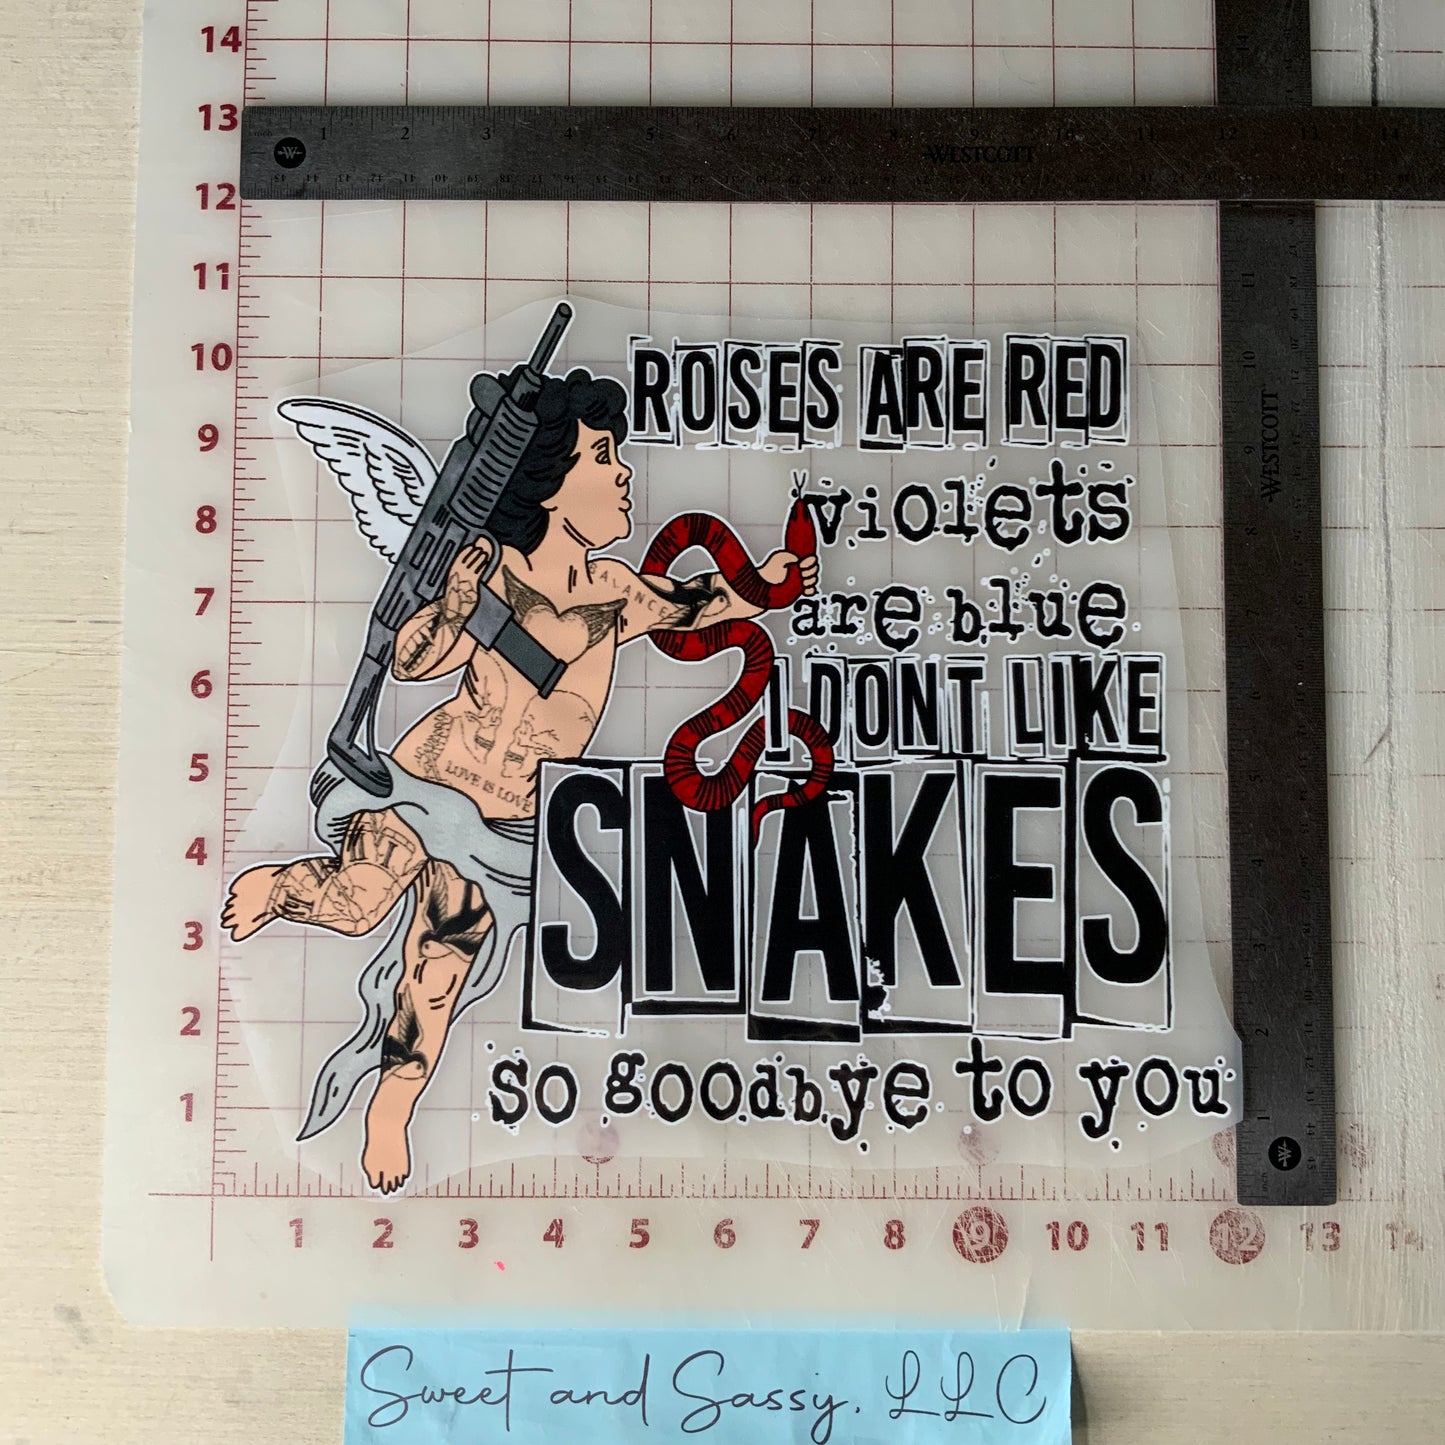 14
13
12
11
10
9
8
7
6
5
4
3
2
1
1 2 3 4 5 6 7 8 9 10 11 12 13 14
WESTCOTT
WESTCOTT
11
10
9
8
7
6
5
4
3
2
1
ROSES ARE RED
violets
are blue
I DONT LIKE
SNAKES
so goodbye to you
BALANCE
LOVE IS LOVE
1 2 3 4 5 6 7 8 9 10 11 12 13 14
Sweet and Sassy, LLC